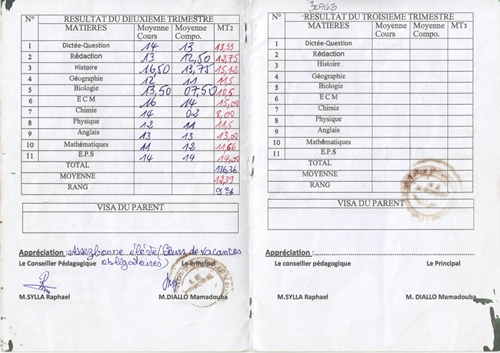 N° RESULTAT DU DEUXIEME TRIMESTRE
MATIERES Moyenne Cours Moyenne Compo. MT2
1 Dictée-Question 14 13 13,33
2 Rédaction 13 12,50 12,75
3 Histoire 16,50 13,75
4 Géographie 12 11 11,5
5 Biologie 13,50 07,50 10,5
6 E C M 16 14 15,00
7 Chimie 14 02 8,00
8 Physique 12 11 11,5
9 Anglais 13 13 13,00
10 Mathématiques 11 12 11,66
11 E.P.S 14 14 14,00
TOTAL 136,36
MOYENNE 12,39
RANG
VISA DU PARENT
Appréciation : Assez bonne élève (Cours de vacances
Le Conseiller Pédagogique obligatoires) Le Principal
M.SYLLA Raphael M. DIALLO Mamadouba
N° RESULTAT DU TROISIEME TRIMESTRE
MATIERES Moyenne Cours Moyenne Compo. MT3
1 Dictée-Question
2 Rédaction
3 Histoire
4 Géographie
5 Biologie
6 E C M
7 Chimie
8 Physique
9 Anglais
10 Mathématiques
11 E.P.S
TOTAL
MOYENNE
RANG
VISA DU PARENT
Appréciation :
Le conseiller pédagogique Le Principal
M.SYLLA Raphael M. DIALLO Mamadouba